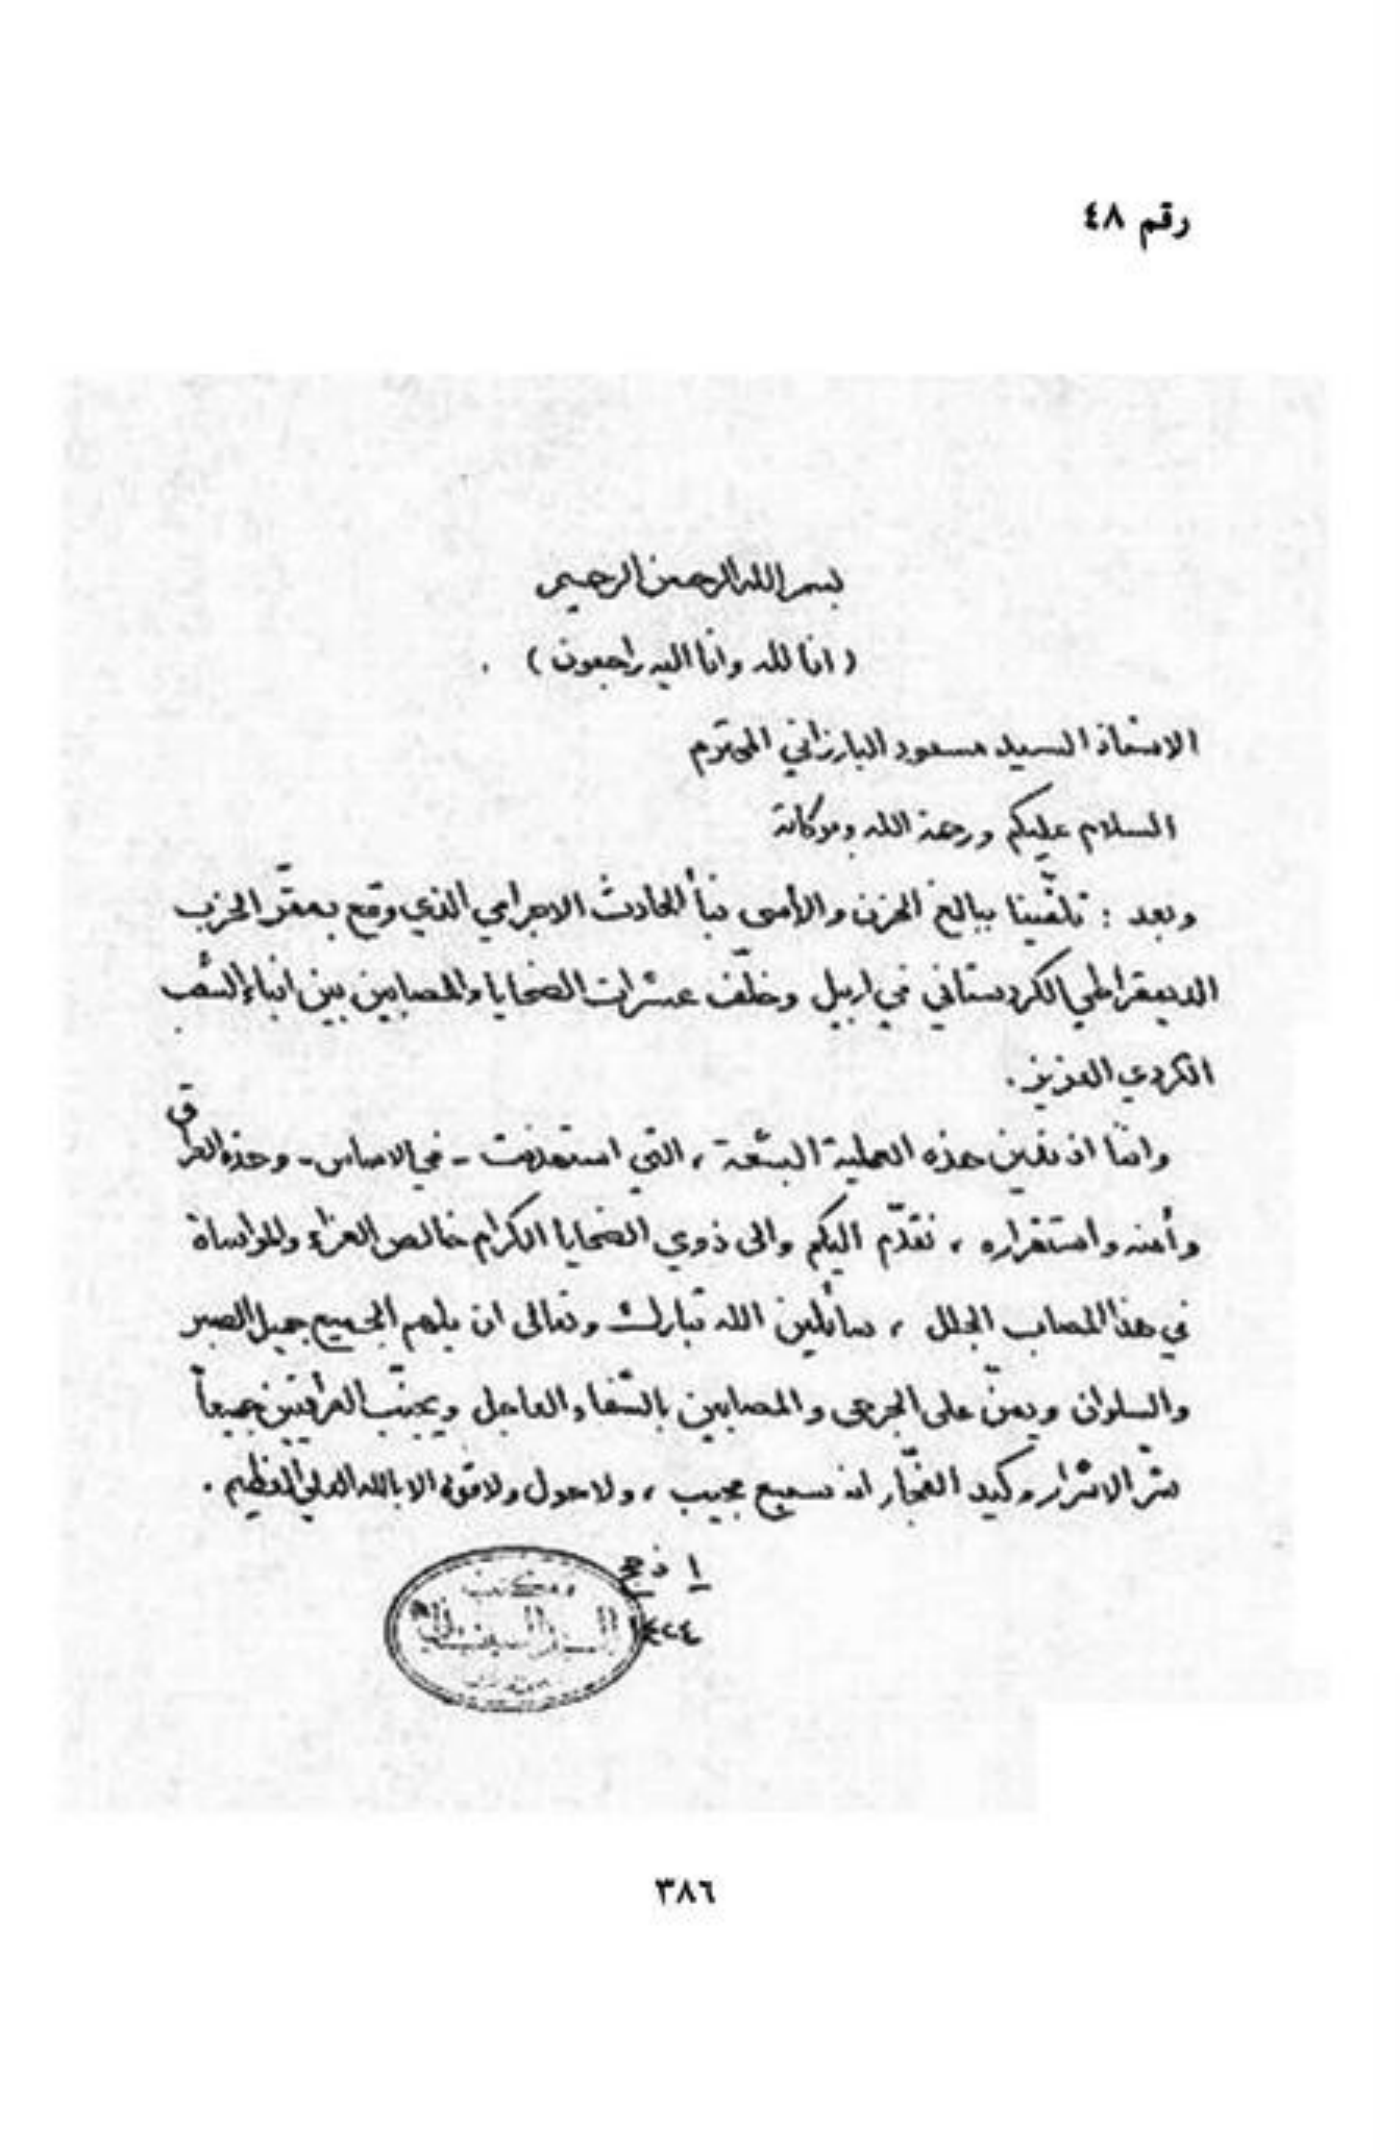 رقم ٤٨
بسم الله الرحمن الرحيم
( انا لله وانا اليه راجعون ) .
الاستاذ السيد مسعود البارزاني المحترم
السلام عليكم ورحمة الله وبركاته
وبعد : تلقّينا ببالغ الحزن والأسى نبأ الحادث الاجرامي الذي وقع بمقرّ الحزب
الديمقراطي الكردستاني في اربيل وخلّف عشرات الضحايا والمصابين بين ابناء الشعب
الكردي العزيز .
واننا اذ ندين هذه العملية البشعة ، التي استهدفت - في الاساس - وحدة العراق
وأمنه واستقراره ، نتقدّم اليكم والى ذوي الضحايا الكرام خالص العزاء والمواساة
في هذا المصاب الجلل ، سائلين الله تبارك وتعالى ان يلهم الجميع جميل الصبر
والسلوان ويمنّ على الجرحى والمصابين بالشّفاء العاجل ويجنّب العراقيّين جميعاً
شرّ الاشرار وكيد الفجّار انه سميع مجيب ، ولا حول ولا قوة الا بالله العلي العظيم .
١٠ ذ حج
١٤٢٤
مكتب
السيد السيستاني
٣٨٦